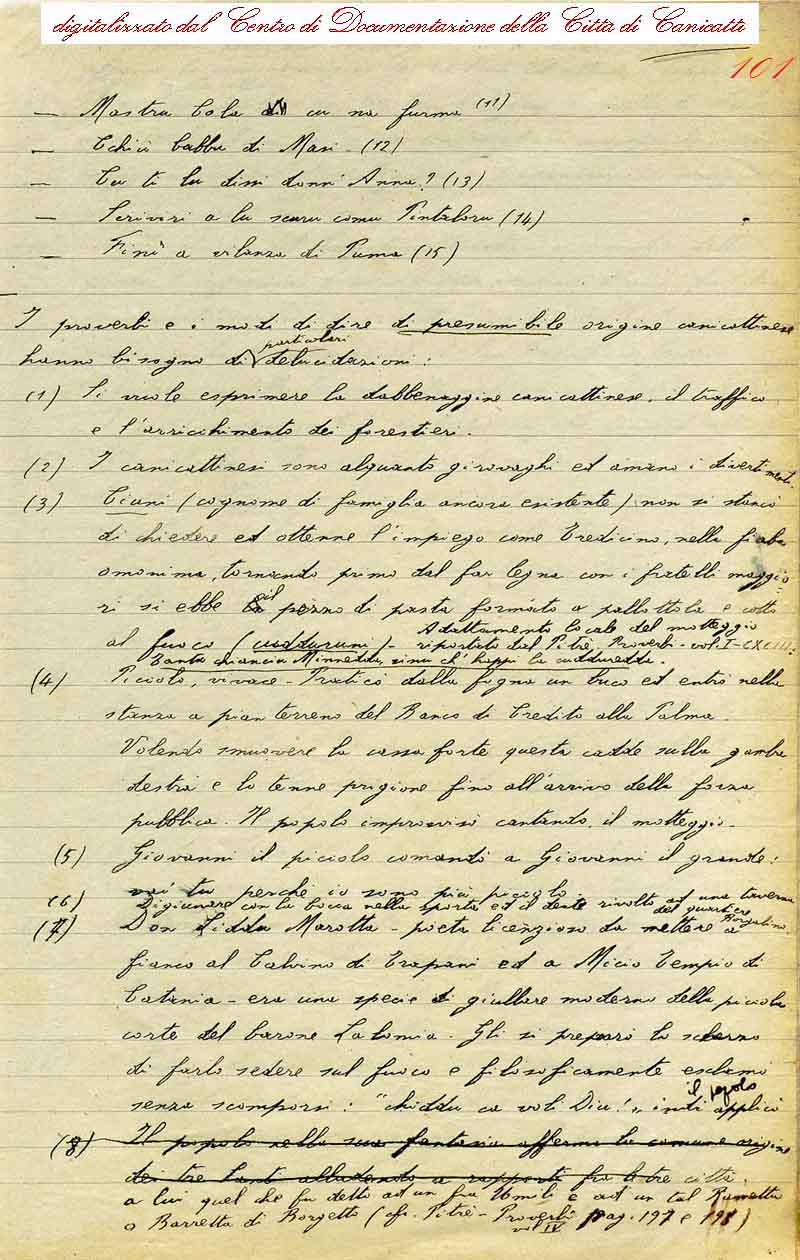 digitalizzato dal Centro di Documentazione della Città di Canicattì
101
— Mastru Cola cu na furma (11)
— Chiù babbu di Masi - (12)
— Cu ti lu dissi donn'Anna? (13)
— Scriviri a lu scuru comu Pintaloru (14)
— Finì a vilanza di Puma (15)
I proverbi e i modi di dire di presumibile origine canicattinese
hanno bisogno di particolari delucidazioni:
(1) Si vuole esprimere la dabbenaggine canicattinese, il traffico
e l'arricchimento dei forestieri.
(2) I canicattinesi sono alquanto girovaghi ed amano i divertimenti.
(3) Ciani (cognome di famiglia ancora esistente) non si stancò
di chiedere ed ottenne l'impiego come Tredicino, nella fiaba
omonima, tornando primo dal far legna con i fratelli maggio-
ri si ebbe il pezzo di pasta formato a pallottola e cotto
al fuoco (cudduruni) - Adattamento locale del motteggio
riportato dal Pitrè, Proverbi - vol. I - CXCIII:
Tantu chianciu Minnedda, sinu ch'happi la cuddur edda.
(4) Piccolo, vivace - Praticò dalla fogna un buco ed entrò nella
stanza a pian terreno del Banco di Credito alla Palma.
Volendo smuovere la cassa forte questa cadde sulla gamba
destra e lo tenne prigione fino all'arrivo della forza
pubblica. Il popolo improvvisò cantando, il motteggio -
(5) Giovanni il piccolo comandò a Giovanni il grande:
vai tu perché io sono più piccolo.
(6) Digiunare con la bocca nella sporta ed il dente rivolto ad una taverna
del quartiere Borgalino.
(7) Don Liddu Marotta - poeta licenzioso da mettere a
fianco al Calvino di Trapani ed a Micio Tempio di
Catania - era una specie di giullare moderno della piccola
corte del barone Lalomia. Gli si preparò lo scherno
di farlo sedere sul fuoco e filosoficamente esclamò
senza scomporsi: "chiddu ca voli Diu!" indi il popolo applicò
(8) Il popolo nella sua fantasia afferma la comune origine
dei tre Santi alludendo a rapporti fra le tre città.
a lui quel che fu detto ad un fra Umili e ad un tal Rametta
o Barretta di Borgetto (cfr. Pitrè - Proverbi vol IV pag. 197 e 198)